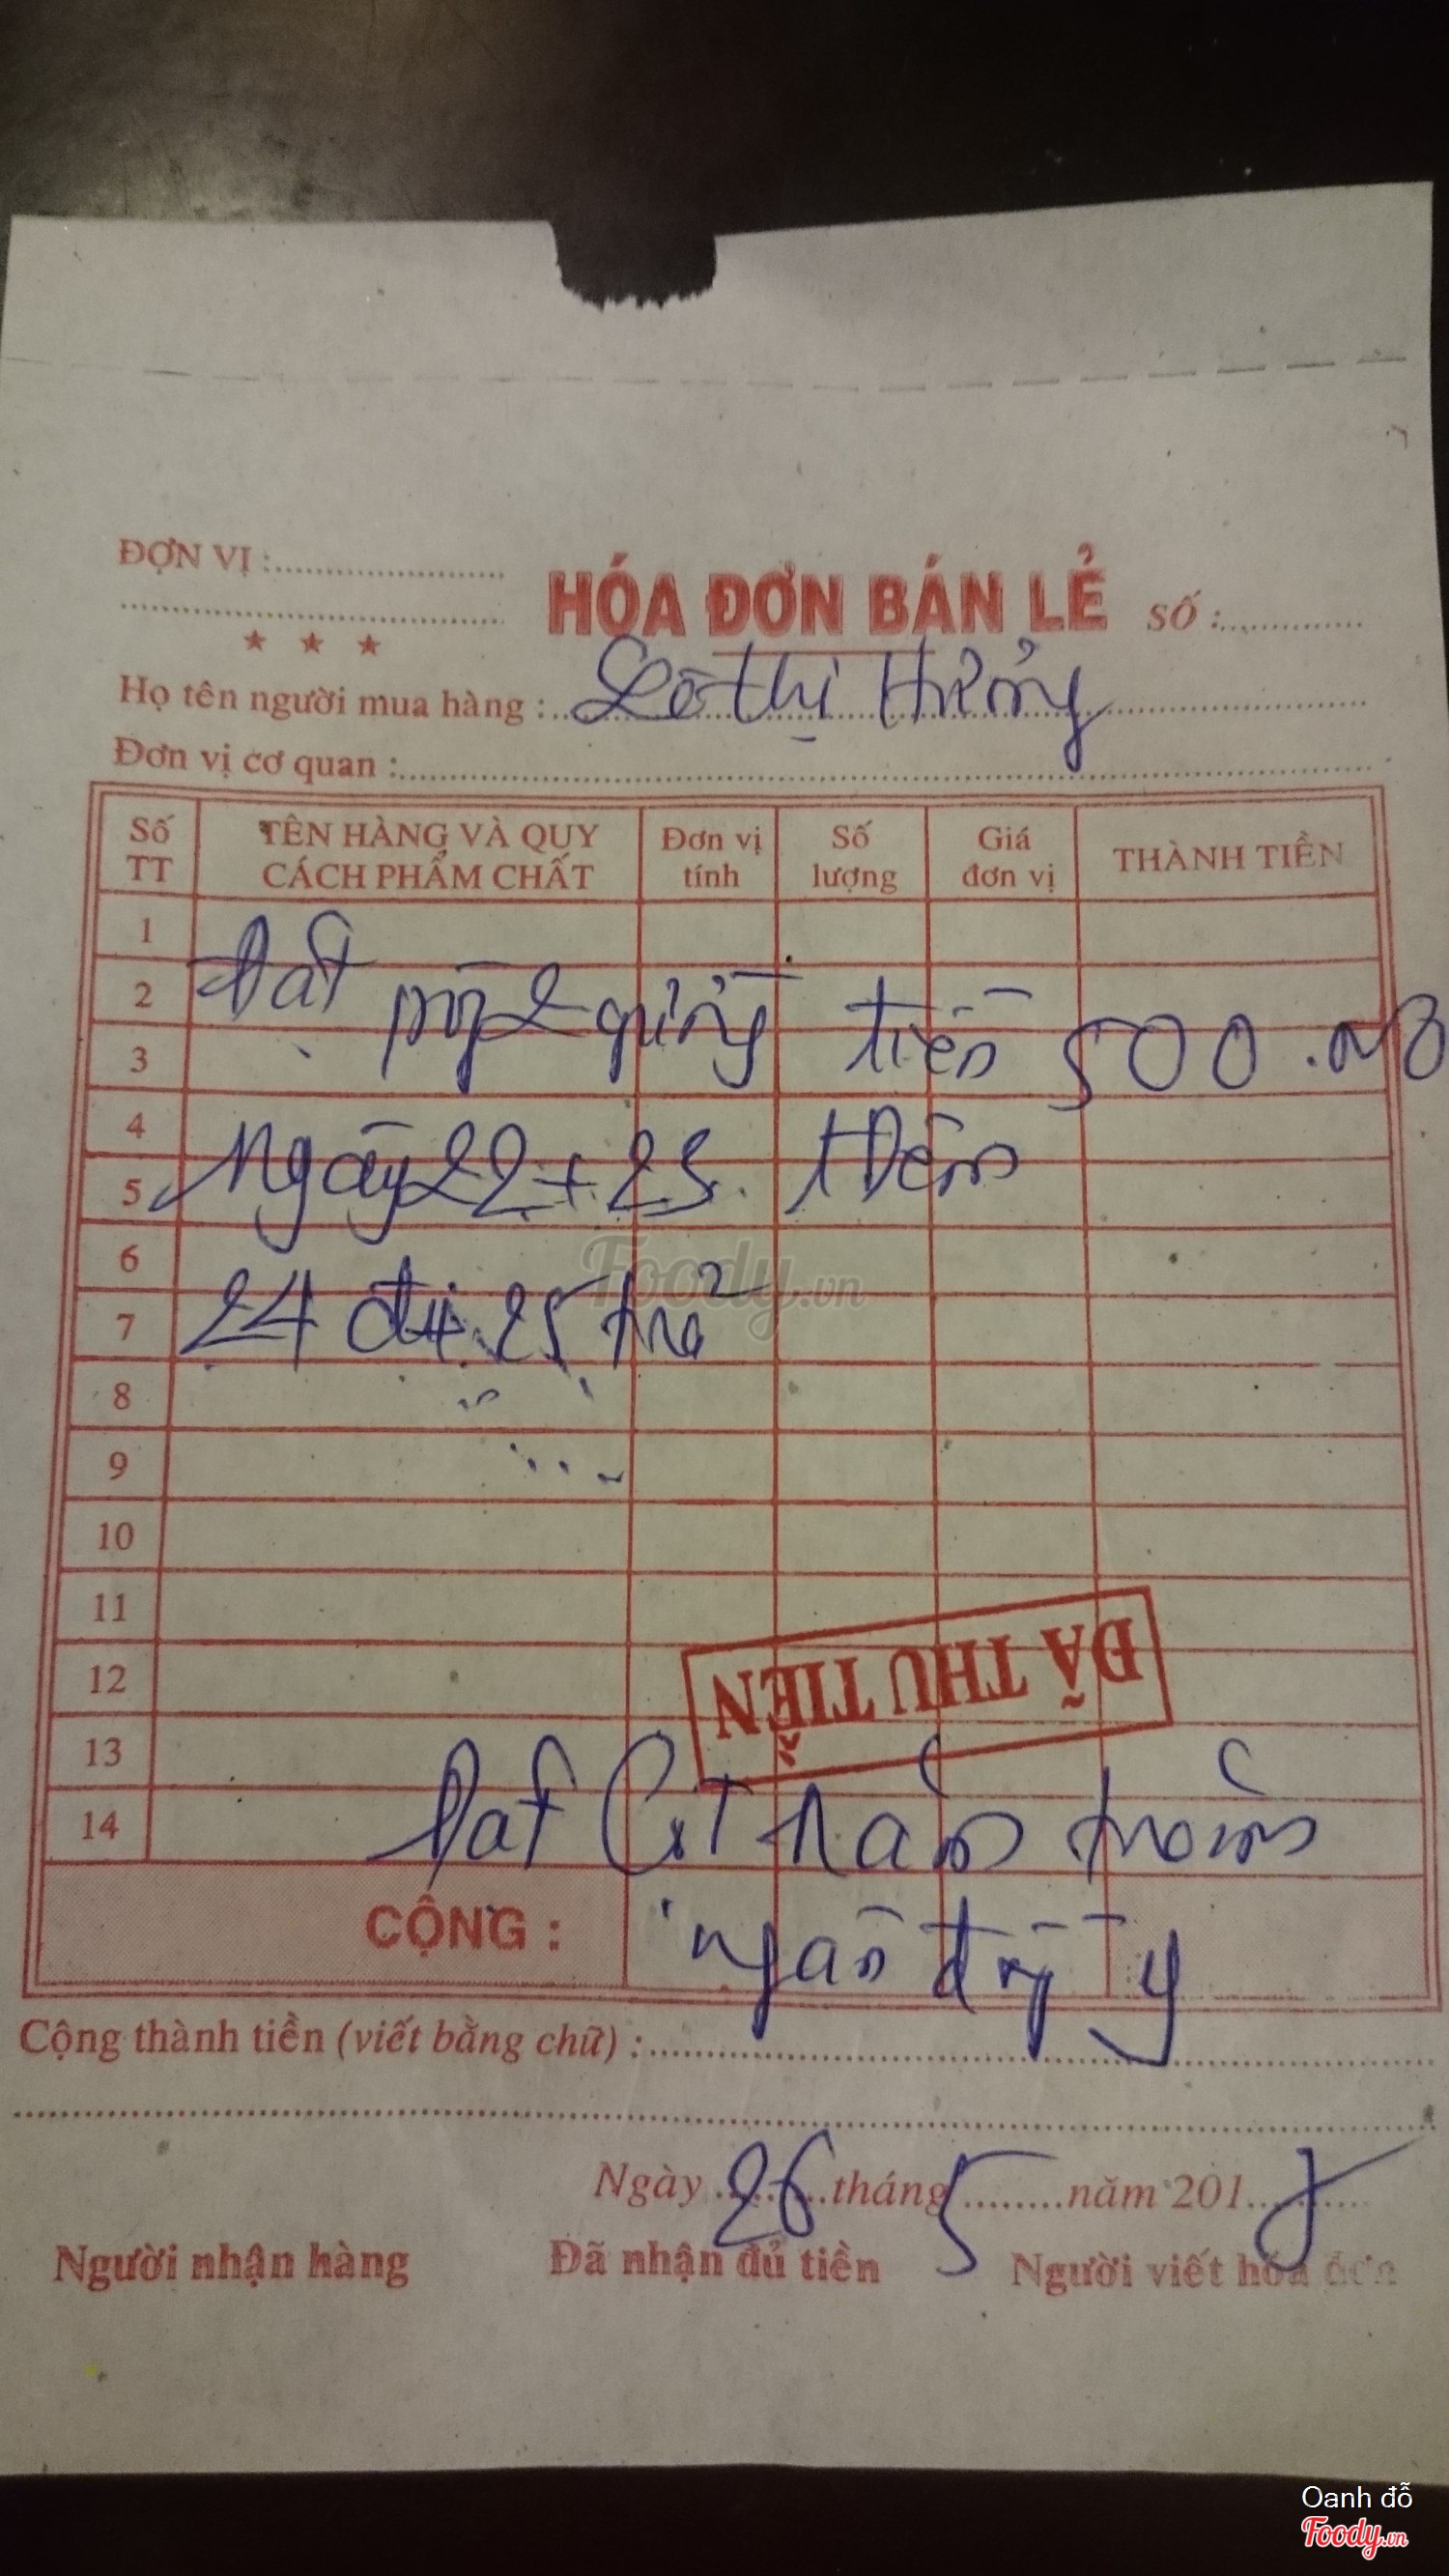 ĐƠN VỊ :
HÓA ĐƠN BÁN LẺ
SỐ :
★ ★ ★
Họ tên người mua hàng : Lê thị
Đơn vị cơ quan :
Số TT TÊN HÀNG VÀ QUY CÁCH PHẨM CHẤT Đơn vị tính Số lượng Giá đơn vị THÀNH TIỀN
1
2 Đặt tiền 500.
3
4
5 Ngày 22 + 23
6
7 24 25 trả
8
9
10
11
12
13
14
ĐÃ THU TIỀN
Đặt năm trăm
CỘNG : ngàn
Cộng thành tiền (viết bằng chữ) :
Ngày 26 tháng 5 năm 2018
Người nhận hàng Đã nhận đủ tiền Người viết hóa đơn
Foody.vn
Oanh đỗ
Foody.vn